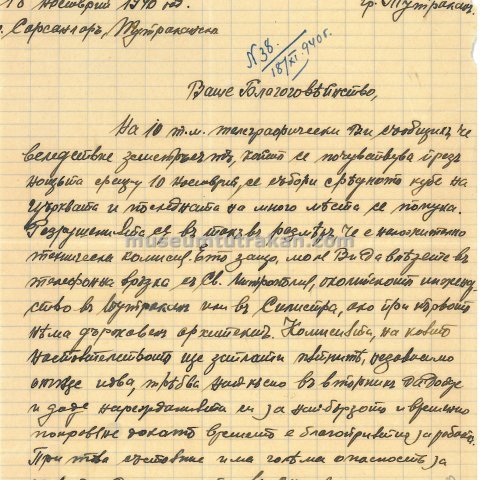 18 Ноемврий 1940 год. гр. Тутракан.
с. Сарсанлар, Тутраканска
№ 38.
18/XI.940 г.
Ваше Благоговѣйнство,
На 10 т.м. телеграфически Ви съобщих че
вследствие земетръса, който се почувствува през
нощьта срещу 10 ноемврий, се събори срѣдното кубе на
църквата и на много мѣста се попука.
Разрушенията са в такъв размѣръ че е
техническа комисия, ето защо, моля Ви да влѣзете въ
телефонна връзка съ Св. Митрополия, околийското
въ Тутракан или въ Силистра, ако при първото
нѣма държавен архитектъ. Комисията, на която
настоятелството ще заплати пѫтнитѣ, независимо
откѫде идва, трѣбва въ вторник да дойде
и даде нарежданията си за най-бързото и временно
покриване докато времето е за работа.
При това състояние има голѣма опасность за
museumtutrakan.com